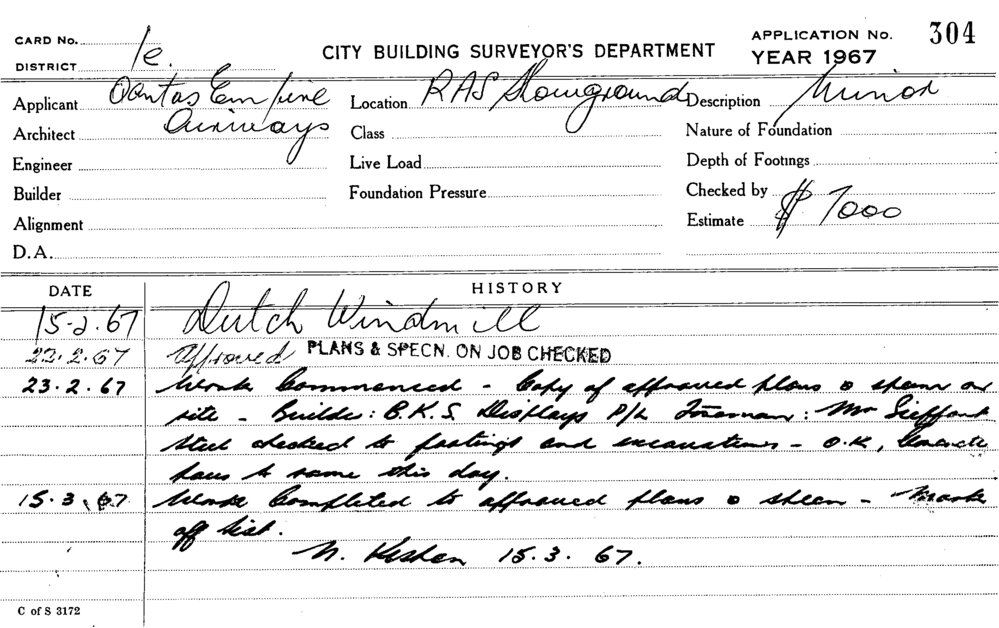 CARD No.
DISTRICT 1e.
CITY BUILDING SURVEYOR'S DEPARTMENT
APPLICATION No. 304
YEAR 1967
Applicant Qantas Empire Airways
Location RAS Showground
Description Minor
Architect
Class
Nature of Foundation
Engineer
Live Load
Depth of Footings
Builder
Foundation Pressure
Checked by
Alignment
Estimate $ 7000
D.A.
DATE HISTORY
15-2.67 Dutch Windmill
22.2.67 Approved PLANS & SPECN. ON JOB CHECKED
23.2.67 Work Commenced - Copy of approved plans & specn on
site - Builder: B.K.S. Displays P/L Foreman: Mr
steel checked to footings and excavations - O.K, Concrete
pour to same this day.
15.3.67 Work Completed to approved plans & specn - Mark
off list.
N. 15.3.67.
C of S 3172